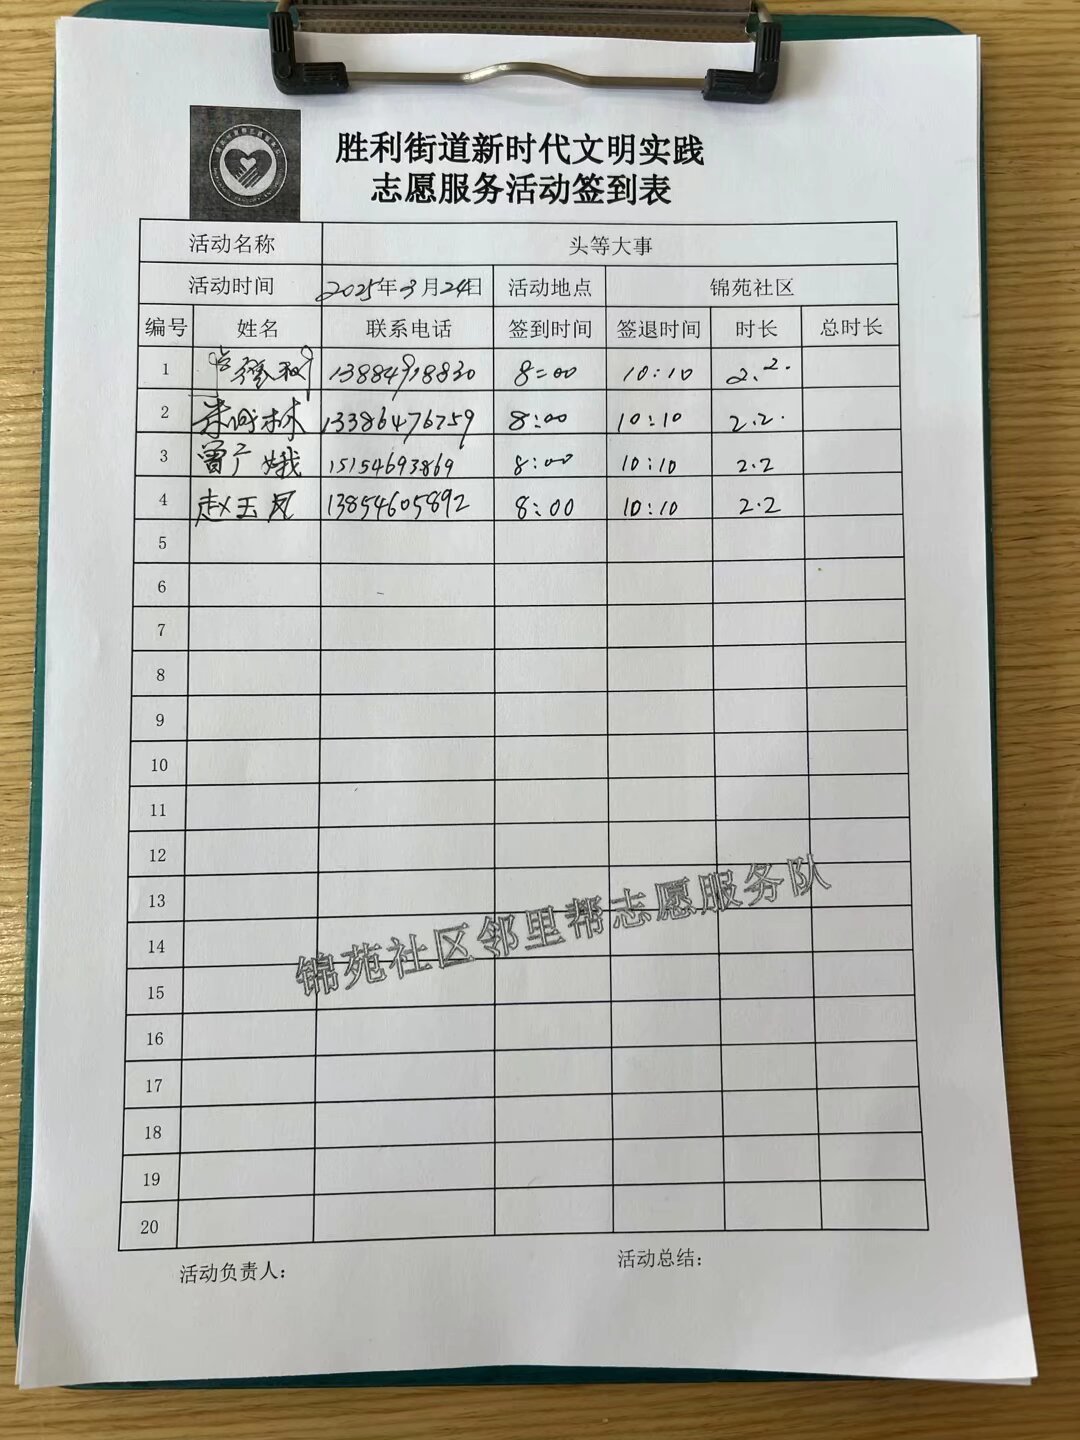 胜利街道新时代文明实践
志愿服务活动签到表
活动名称 头等大事
活动时间 2025年3月24日 活动地点 锦苑社区
编号 姓名 联系电话 签到时间 签退时间 时长 总时长
1 13884918830 8:00 10:10 2.2.
2 朱 林 13386476759 8:00 10:10 2.2.
3 曾广娥 15154693869 8:00 10:10 2.2
4 赵玉凤 13854605892 8:00 10:10 2.2
5
6
7
8
9
10
11
12
13
14
15
16
17
18
19
20
锦苑社区邻里帮志愿服务队
活动负责人: 活动总结: